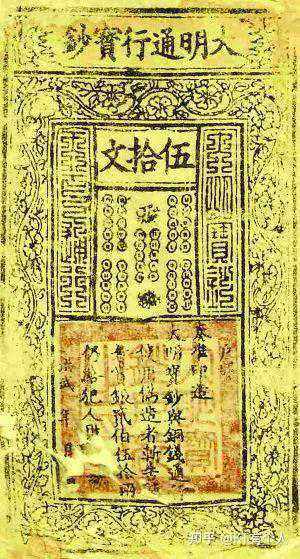 大明通行寶鈔
伍拾文
戶部
奏准印造
大明寶鈔與銅錢通
行使用偽造者斬告
賞銀貳伯伍拾兩
仍給犯人財
洪武 年 月 日
知乎